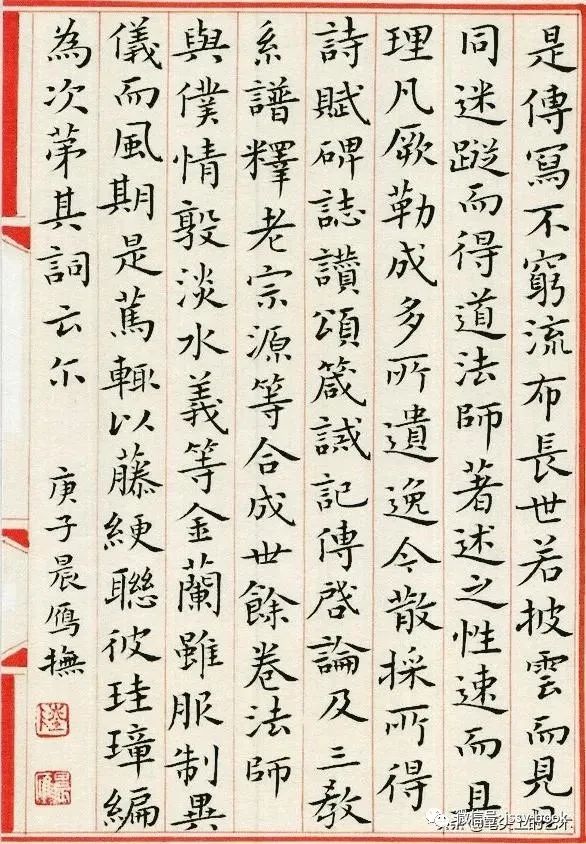 是傳寫不窮流布長世若披雲而見日
同迷蹤而得道法師著述之性速而且
理凡厥勒成多所遺逸今散採所得
詩賦碑誌讚頌箴誡記傳啓論及三教
系譜釋老宗源等合成世餘卷法師
與僕情敦淡水義等金蘭雖服制異
儀而風期是篤輙以藤綆聯彼珪璋編
為次第其詞云尔
庚子晨鴈撫
微信号: jssy-book